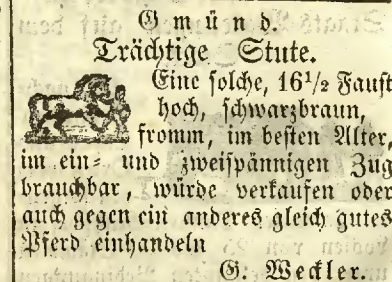 Gmünd.
Trächtige Stute.
Eine solche, 16½ Faust
hoch, schwarzbraun,
fromm, im besten Alter,
im ein= und zweispännigen Zug
brauchbar, würde verkaufen oder
auch gegen ein anderes gleich gutes
Pferd einhandeln
G. Weckler.